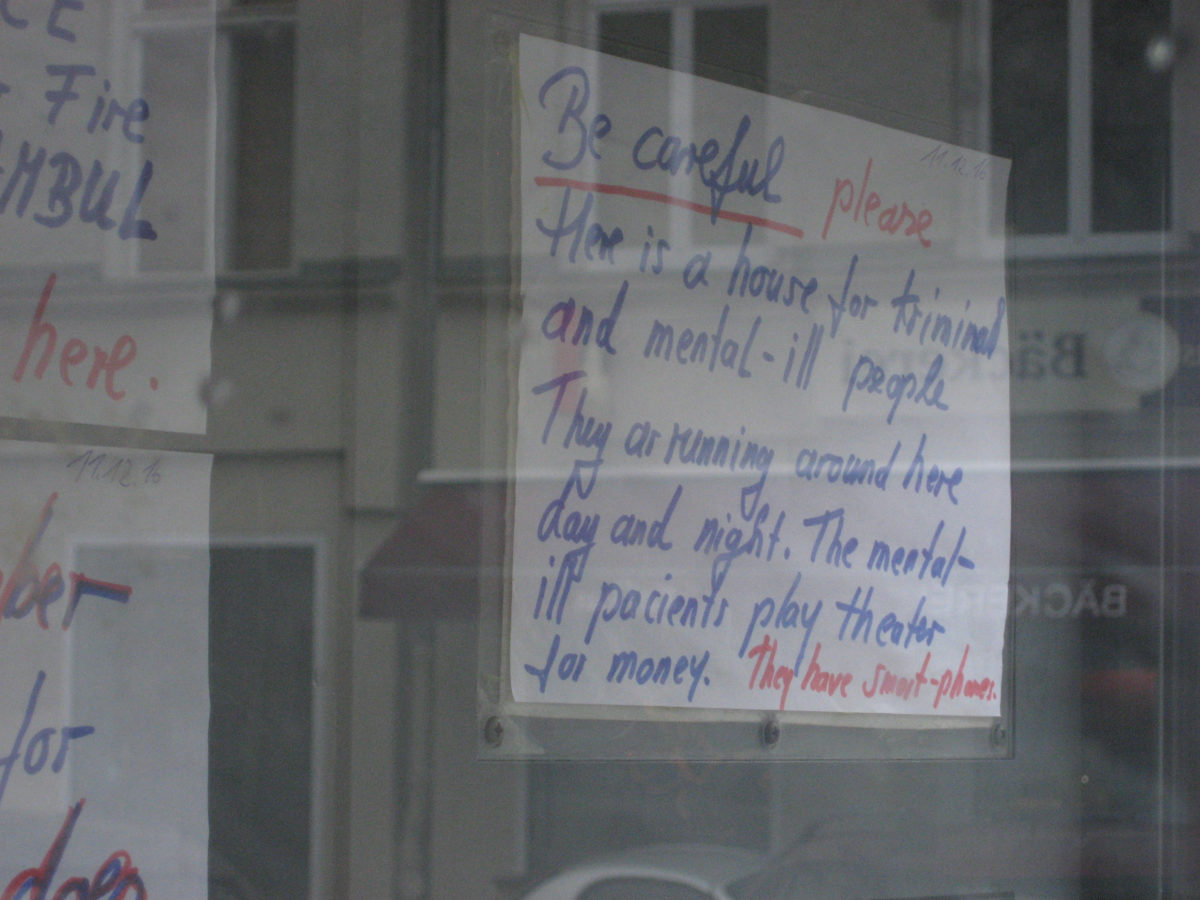 Fire
AMBUL
here.
11.12.16
for
11.12.16
Be careful please
Here is a house for kriminal
and mental-ill people
They ar running around here
day and night. The mental-
ill pacients play theater
for money. They have smart-phones.
Bäckerei
BÄCKEREI